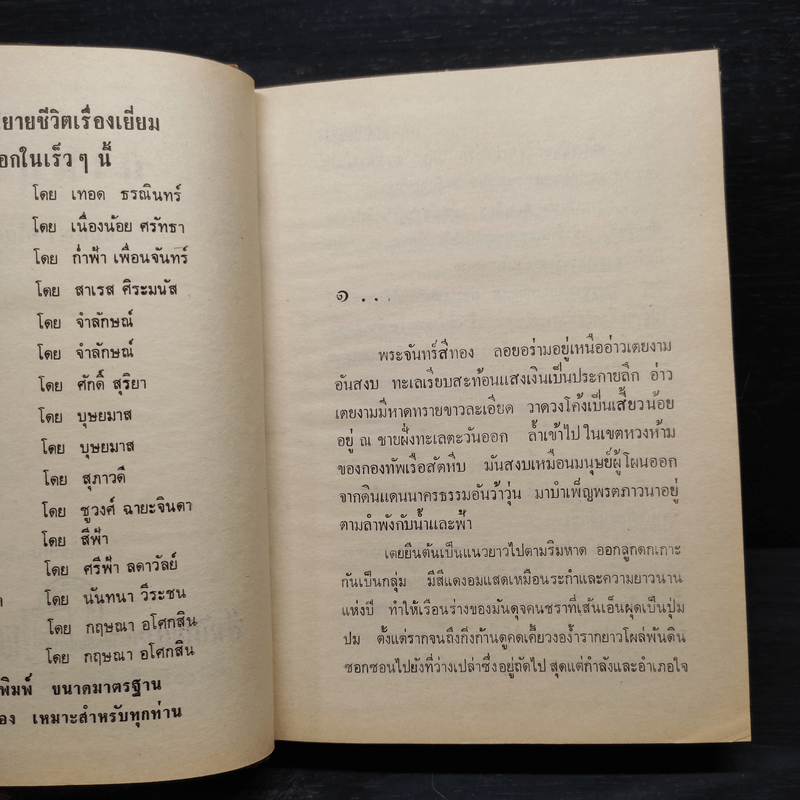 ยายชีวิตเรื่องเยี่ยม
อกในเร็ว ๆ นี้
โดย เทอด ธรณินทร์
โดย เนื่องน้อย ศรัทธา
โดย ก่ำฟ้า เพื่อนจันทร์
โดย สาเรส ศิระมนัส
โดย จำลักษณ์
โดย จำลักษณ์
โดย ศักดิ์ สุริยา
โดย บุษยมาส
โดย บุษยมาส
โดย สุภาวดี
โดย ชูวงศ์ ฉายะจินดา
โดย สีฟ้า
โดย ศรีฟ้า ลดาวัลย์
โดย นันทนา วีระชน
โดย กฤษณา อโศกสิน
โดย กฤษณา อโศกสิน
พิมพ์ ขนาดมาตรฐาน
อง เหมาะสำหรับทุกท่าน
๑ . . .
พระจันทร์สีทอง ลอยอร่ามอยู่เหนืออ่าวเตยงาม
อันสงบ ทะเลเรียบสะท้อนแสงเงินเป็นประกายลึก อ่าว
เตยงามมีหาดทรายขาวละเอียด วาดวงโค้งเป็นเสี้ยวน้อย
อยู่ ณ ชายฝั่งทะเลตะวันออก ล้ำเข้าไปในเขตหวงห้าม
ของกองทัพเรือสัตหีบ มันสงบเหมือนมนุษย์ผู้โผนออก
จากดินแดนนาครธรรมอันว้าวุ่น มาบำเพ็ญพรตภาวนาอยู่
ตามลำพังกับน้ำและฟ้า
เตยยืนต้นเป็นแนวยาวไปตามริมหาด ออกลูกดกเกาะ
กันเป็นกลุ่ม มีสีแดงอมแสดเหมือนระกำและความยาวนาน
แห่งปี ทำให้เรือนร่างของมันดุจคนชราที่เส้นเอ็นผุดเป็นปุ่ม
ปม ตั้งแต่รากจนถึงกิ่งก้านดูคดเคี้ยวงอง้ำรากยาวโผล่พ้นดิน
ซอกซอนไปยังที่ว่างเปล่าซึ่งอยู่ถัดไป สุดแต่กำลังและอำเภอใจ